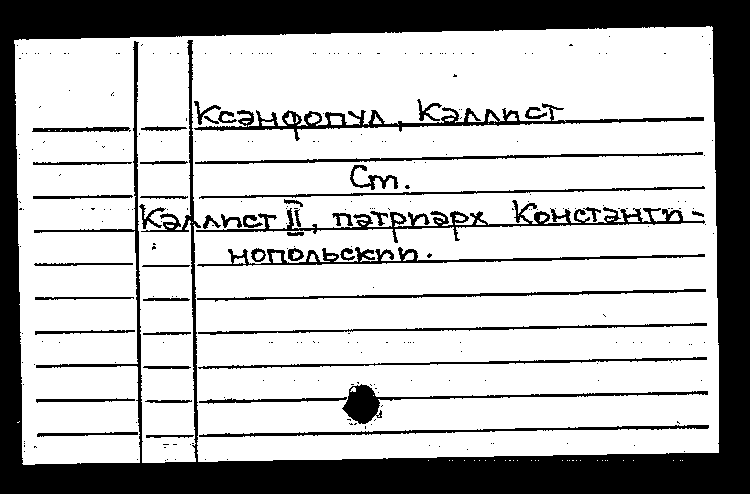 Ксанфопул, Каллист
Ст.
Каллист II, патриарх Константи-
нопольский.